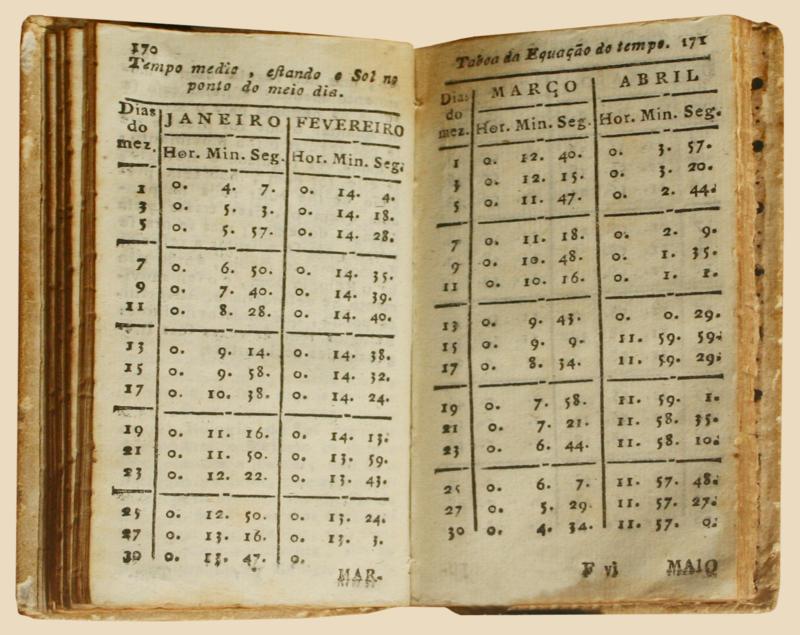 170
Tempo medio, estando o Sol no
ponto do meio dia.
Dias do mez. JANEIRO FEVEREIRO
Hor. Min. Seg. Hor. Min. Seg.
1 0. 4. 7. 0. 14. 4.
3 0. 5. 3. 0. 14. 18.
5 0. 5. 57. 0. 14. 28.
7 0. 6. 50. 0. 14. 35.
9 0. 7. 40. 0. 14. 39.
11 0. 8. 28. 0. 14. 40.
13 0. 9. 14. 0. 14. 38.
15 0. 9. 58. 0. 14. 32.
17 0. 10. 38. 0. 14. 24.
19 0. 11. 16. 0. 14. 13.
21 0. 11. 50. 0. 13. 59.
23 0. 12. 22. 0. 13. 43.
25 0. 12. 50. 0. 13. 24.
27 0. 13. 16. 0. 13. 3.
30 0. 13. 47. 0.
MAR-
Taboa da Equação do tempo. 171
Dias do mez. MARÇO ABRIL
Hor. Min. Seg. Hor. Min. Seg.
1 0. 12. 40. 0. 3. 57.
3 0. 12. 15. 0. 3. 20.
5 0. 11. 47. 0. 2. 44.
7 0. 11. 18. 0. 2. 9.
9 0. 10. 48. 0. 1. 35.
11 0. 10. 16. 0. 1. 1.
13 0. 9. 43. 0. 0. 29.
15 0. 9. 9. 11. 59. 59.
17 0. 8. 34. 11. 59. 29.
19 0. 7. 58. 11. 59. 1.
21 0. 7. 21. 11. 58. 35.
23 0. 6. 44. 11. 58. 10.
25 0. 6. 7. 11. 57. 48.
27 0. 5. 29. 11. 57. 27.
30 0. 4. 34. 11. 57. 0.
F vj MAIO